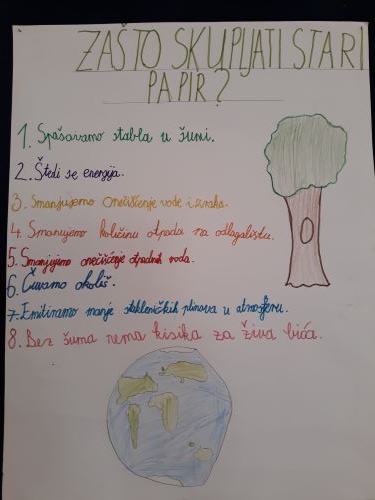 ZAŠTO SKUPLJATI STARI
PAPIR?
1. Spašavamo stabla u šumi.
2. Štedi se energija.
3. Smanjujemo onečišćenje vode i zraka.
4. Smanjujemo količinu otpada na odlagalištu.
5. Smanjujemo onečišćenje otpadnih voda.
6. Čuvamo okoliš.
7. Emitiramo manje stakleničkih plinova u atmosferu.
8. Bez šuma nema kisika za živa bića.